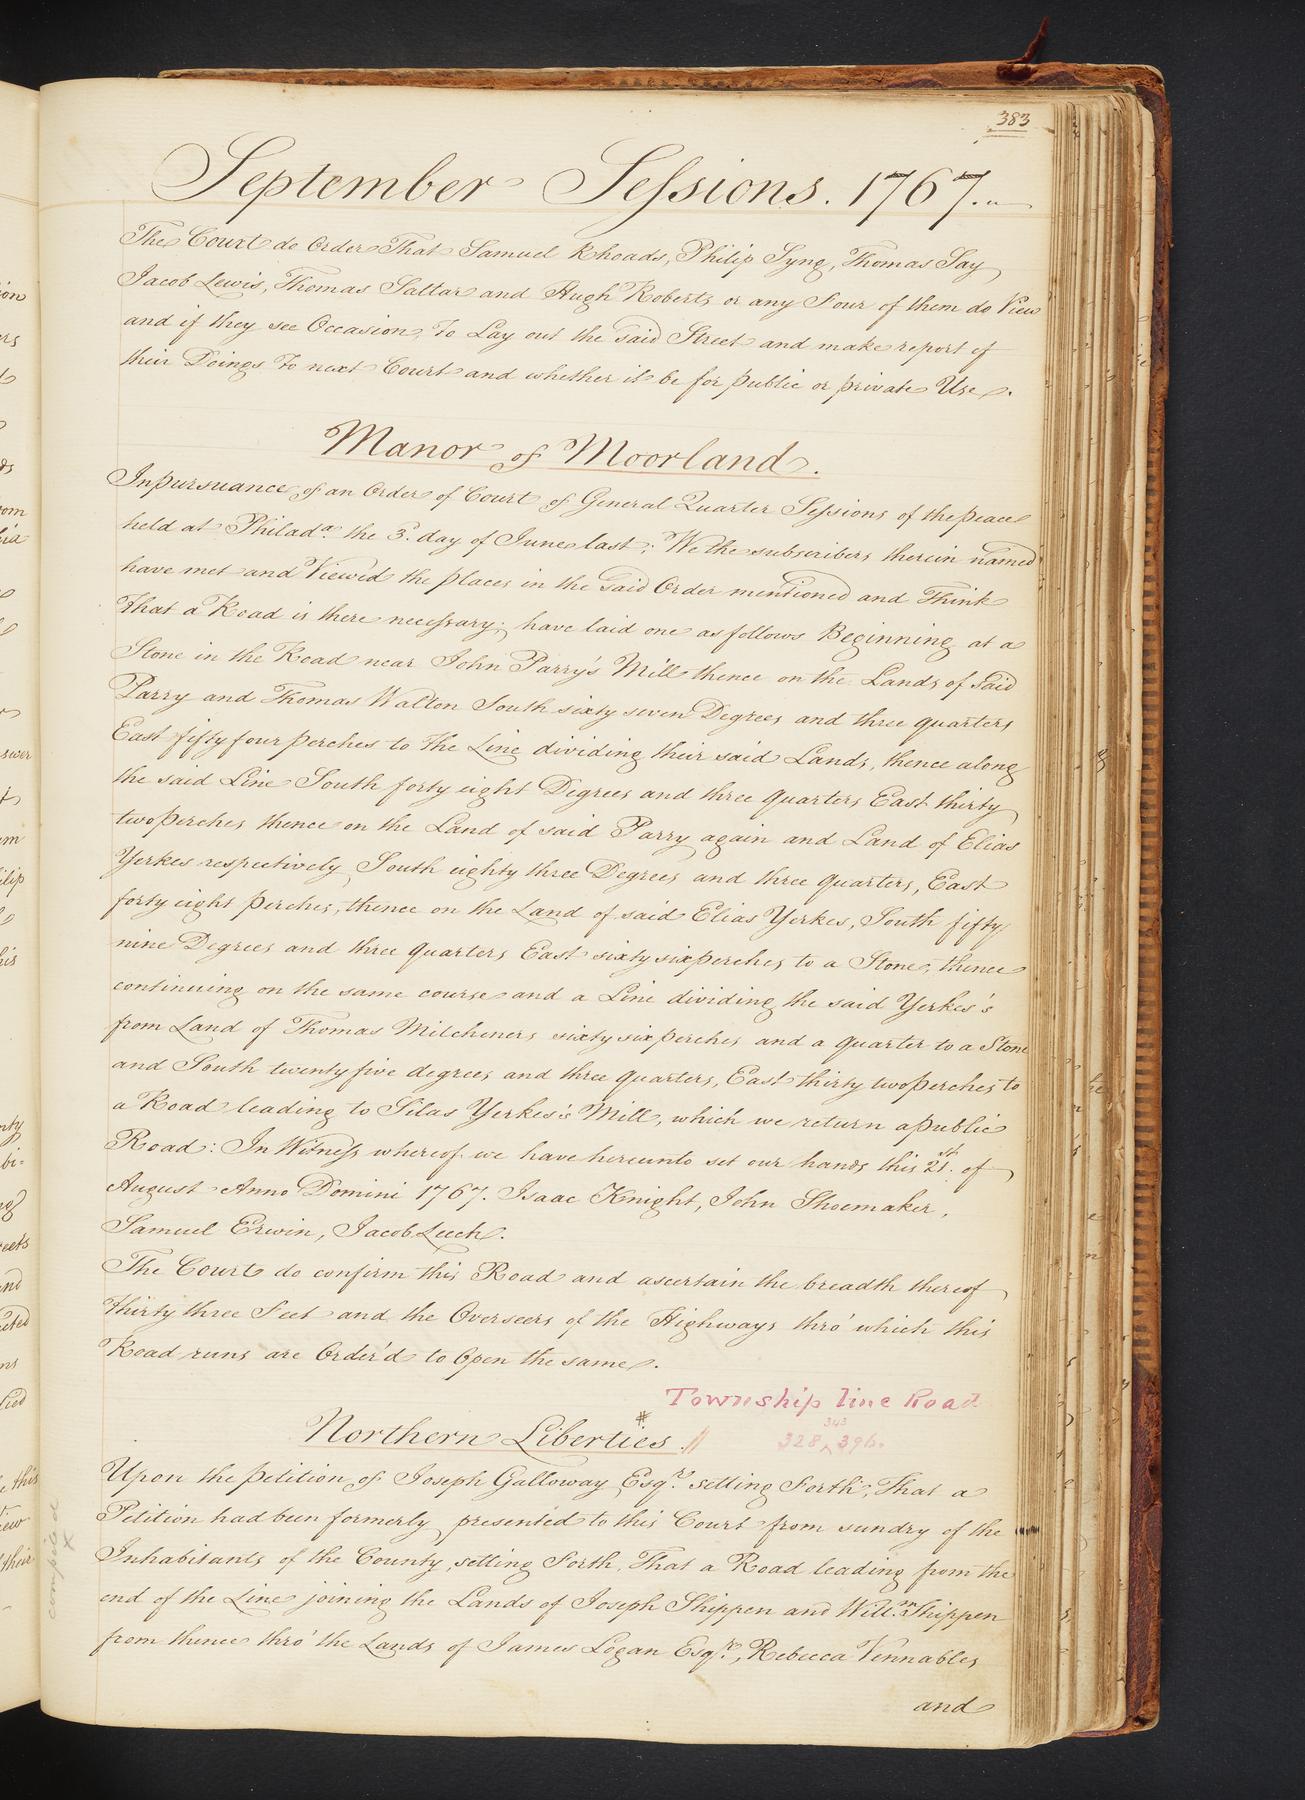 383
September Sessions. 1767.
The Court do Order That Samuel Rhoads, Philip Syng, Thomas Say
Jacob Lewis, Thomas Saltar and Hugh Roberts or any Four of them do View
and if they see Occasion, To Lay out the said Street and make report of
their Doings To next Court and whether it be for public or private Use.
Manor of Moorland.
In pursuance of an Order of Court of General Quarter Sessions of the peace
held at Philada. the 3d. day of June last: We the subscribers therein named
have met and Viewed the places in the said Order mentioned and Think
that a Road is there necessary; have laid one as follows Beginning at a
Stone in the Road near John Parry's Mill thence on the Lands of said
Parry and Thomas Walton South sixty seven Degrees and three quarters
East fifty four perches to the Line dividing their said Lands, thence along
the said Line South forty eight Degrees and three quarters East thirty
two perches thence on the Land of said Parry again and Land of Elias
Yerkes respectively South eighty three Degrees and three quarters, East
forty eight perches, thence on the Land of said Elias Yerkes, South fifty
nine Degrees and three quarters East sixty six perches to a Stone, thence
continuing on the same course and a Line dividing the said Yerkes's
from Land of Thomas Mitcheners sixty six perches and a quarter to a Stone
and South twenty five degrees and three quarters, East thirty two perches to
a Road leading to Silas Yerkes's Mill, which we return a public
Road: In Witness whereof we have hereunto set our hands this 21st. of
August Anno Domini 1767. Isaac Knight, John Shoemaker,
Samuel Erwin, Jacob Leech.
The Court do confirm this Road and ascertain the breadth thereof
thirty three Feet and the Overseers of the Highways thro' which this
Road runs are Order'd to Open the same.
Township line Road
343
328 ^ 396.
Northern Liberties. #
Upon the petition of Joseph Galloway Esqr. setting Forth, That a
Petition had been formerly presented to this Court from sundry of the
Inhabitants of the County, setting Forth, That a Road leading from the
end of the Line joining the Lands of Joseph Shippen and Willm. Shippen
from thence thro' the Lands of James Logan Esqr., Rebecca Vennables
and